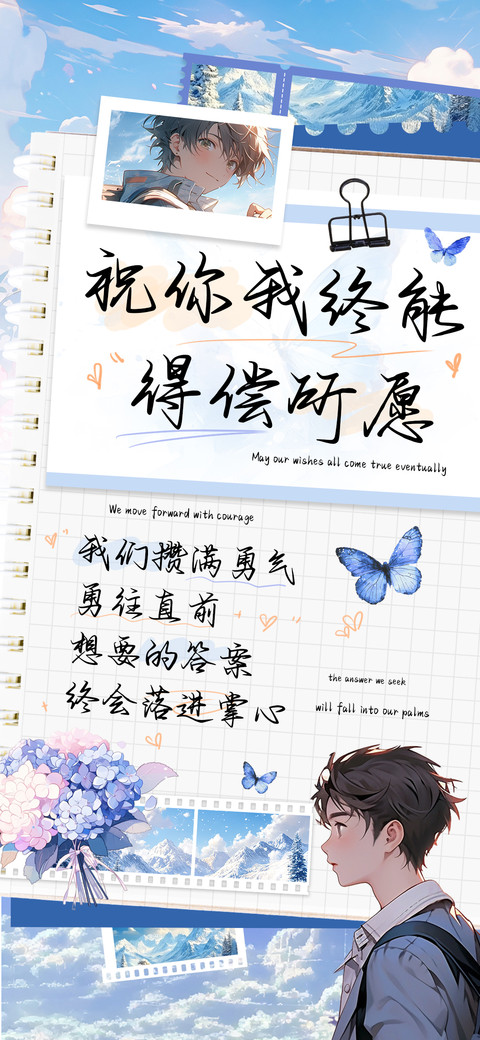 祝你我终能
得偿所愿
May our wishes all come true eventually
We move forward with courage
我们攒满勇气
勇往直前
想要的答案
终会落进掌心
the answer we seek
will fall into our palms